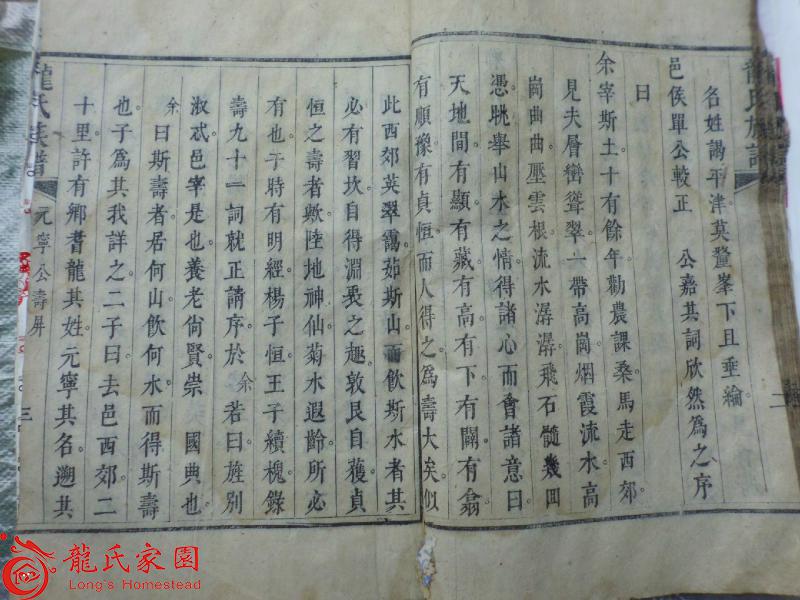 龍氏族譜
二
名姓謁平津莫鰲峯下且垂綸
邑侯單公較正　公嘉其詞欣然為之序
曰
余宰斯土十有餘年勸農課桑馬走西郊
見夫層巒聳翠一帶高崗烟霞流水高
崗曲曲壓雲根流水潺潺飛石髓幾回
憑眺舉山水之情得諸心而會諸意曰
天地間有顯有藏有高有下有闢有翕
有順豫有貞恒而人得之為壽大矣似
此西郊英翠靄茹斯山而飲斯水者其
必有習坎自得淵褱之趣敦艮自獲貞
恒之壽者歟陸地神仙菊水遐齡所必
有也于時有明經楊子恒王子續槐錄
壽九十一詞就正請序於余若曰旌別
淑忒邑宰是也養老尙賢祟　國典也
余曰斯壽者居何山飲何水而得斯壽
也子為其我詳之二子曰去邑西郊二
十里許有鄉耆龍其姓元寧其名遡其
龍氏族譜
元寧公壽屏
三
龍氏家園
Long's Homestead